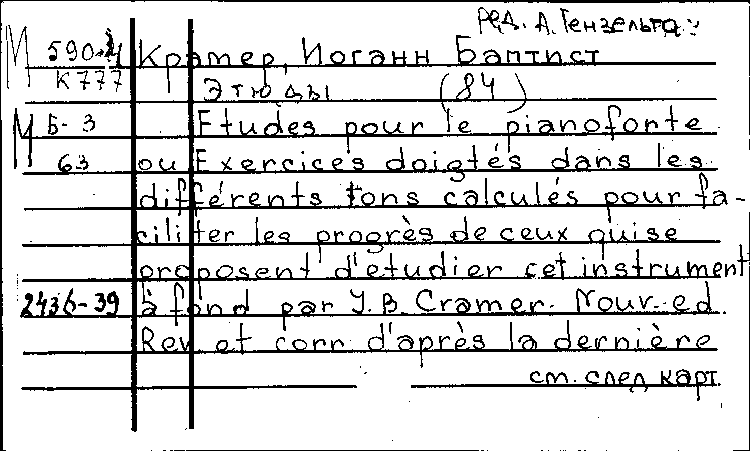 Ред. А. Гензельта
М 590-4 Крамер, Иоганн Баптист
К777 Этюды (84)
М Б-3 Etudes pour le pianoforte
63 ou Exercices doigtés dans les
différents tons calculés pour fa-
ciliter les progrès de ceux qui se
proposent d'etudier cet instrument
2436-39 à fond par J. B. Cramer. Nouv. ed.
Rev et corr d'après la dernière
см. след карт.